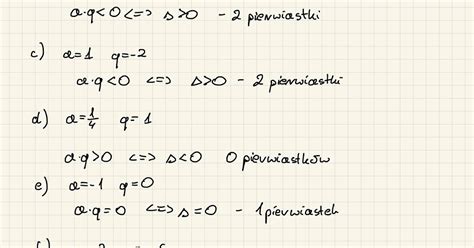 a·q<0 <=> Δ>0 - 2 pierwiastki
c) a=1 q=-2
a·q<0 <=> Δ>0 - 2 pierwiastki
d) a=1/4 q=1
a·q>0 <=> Δ<0 0 pierwiastków
e) a=-1 q=0
a·q=0 <=> Δ=0 - 1 pierwiastek